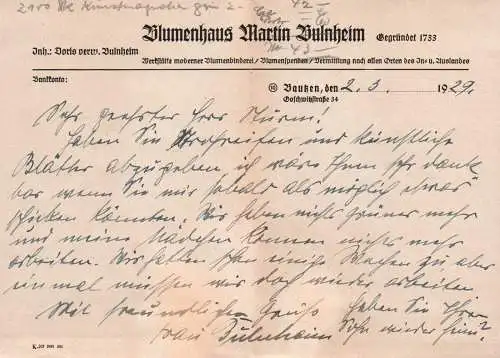 2100 42
43
Blumenhaus Martin Bulnheim Gegründet 1733
Inh.: Doris verw. Bulnheim
Werkstätte moderner Blumenbinderei / Blumenspenden / Vermittlung nach allen Orten des In- u. Auslandes
Bankkonto:
Bautzen, den 2. 3. 1929.
Goschwitzstraße 34
Sehr geehrter Herr Sturm!
Haben Sie und künstliche
Blätter abzugeben ich wäre Ihnen sehr dank
bar wenn Sie mir sobald als möglich etwas
schicken könnten. Wir haben nichts grünes mehr
und meine Mädchen können nichts mehr
arbeiten. Wir hatten schon einige Wochen zu aber
einmal müssen wir doch wieder arbeiten
Mit freundlichem Gruß haben Sie
Frau Bulnheim